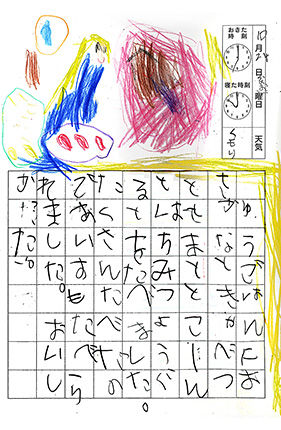 10月 日 曜日
天気 くもり
おきた時刻
寝た時刻
ゅうごはんにお
さかなときゃべつ
とてまととこじん
とはちみつようぐ
るとをたべました。
たくさんたべたの
であいすもたべら
れました。おいし
かった。